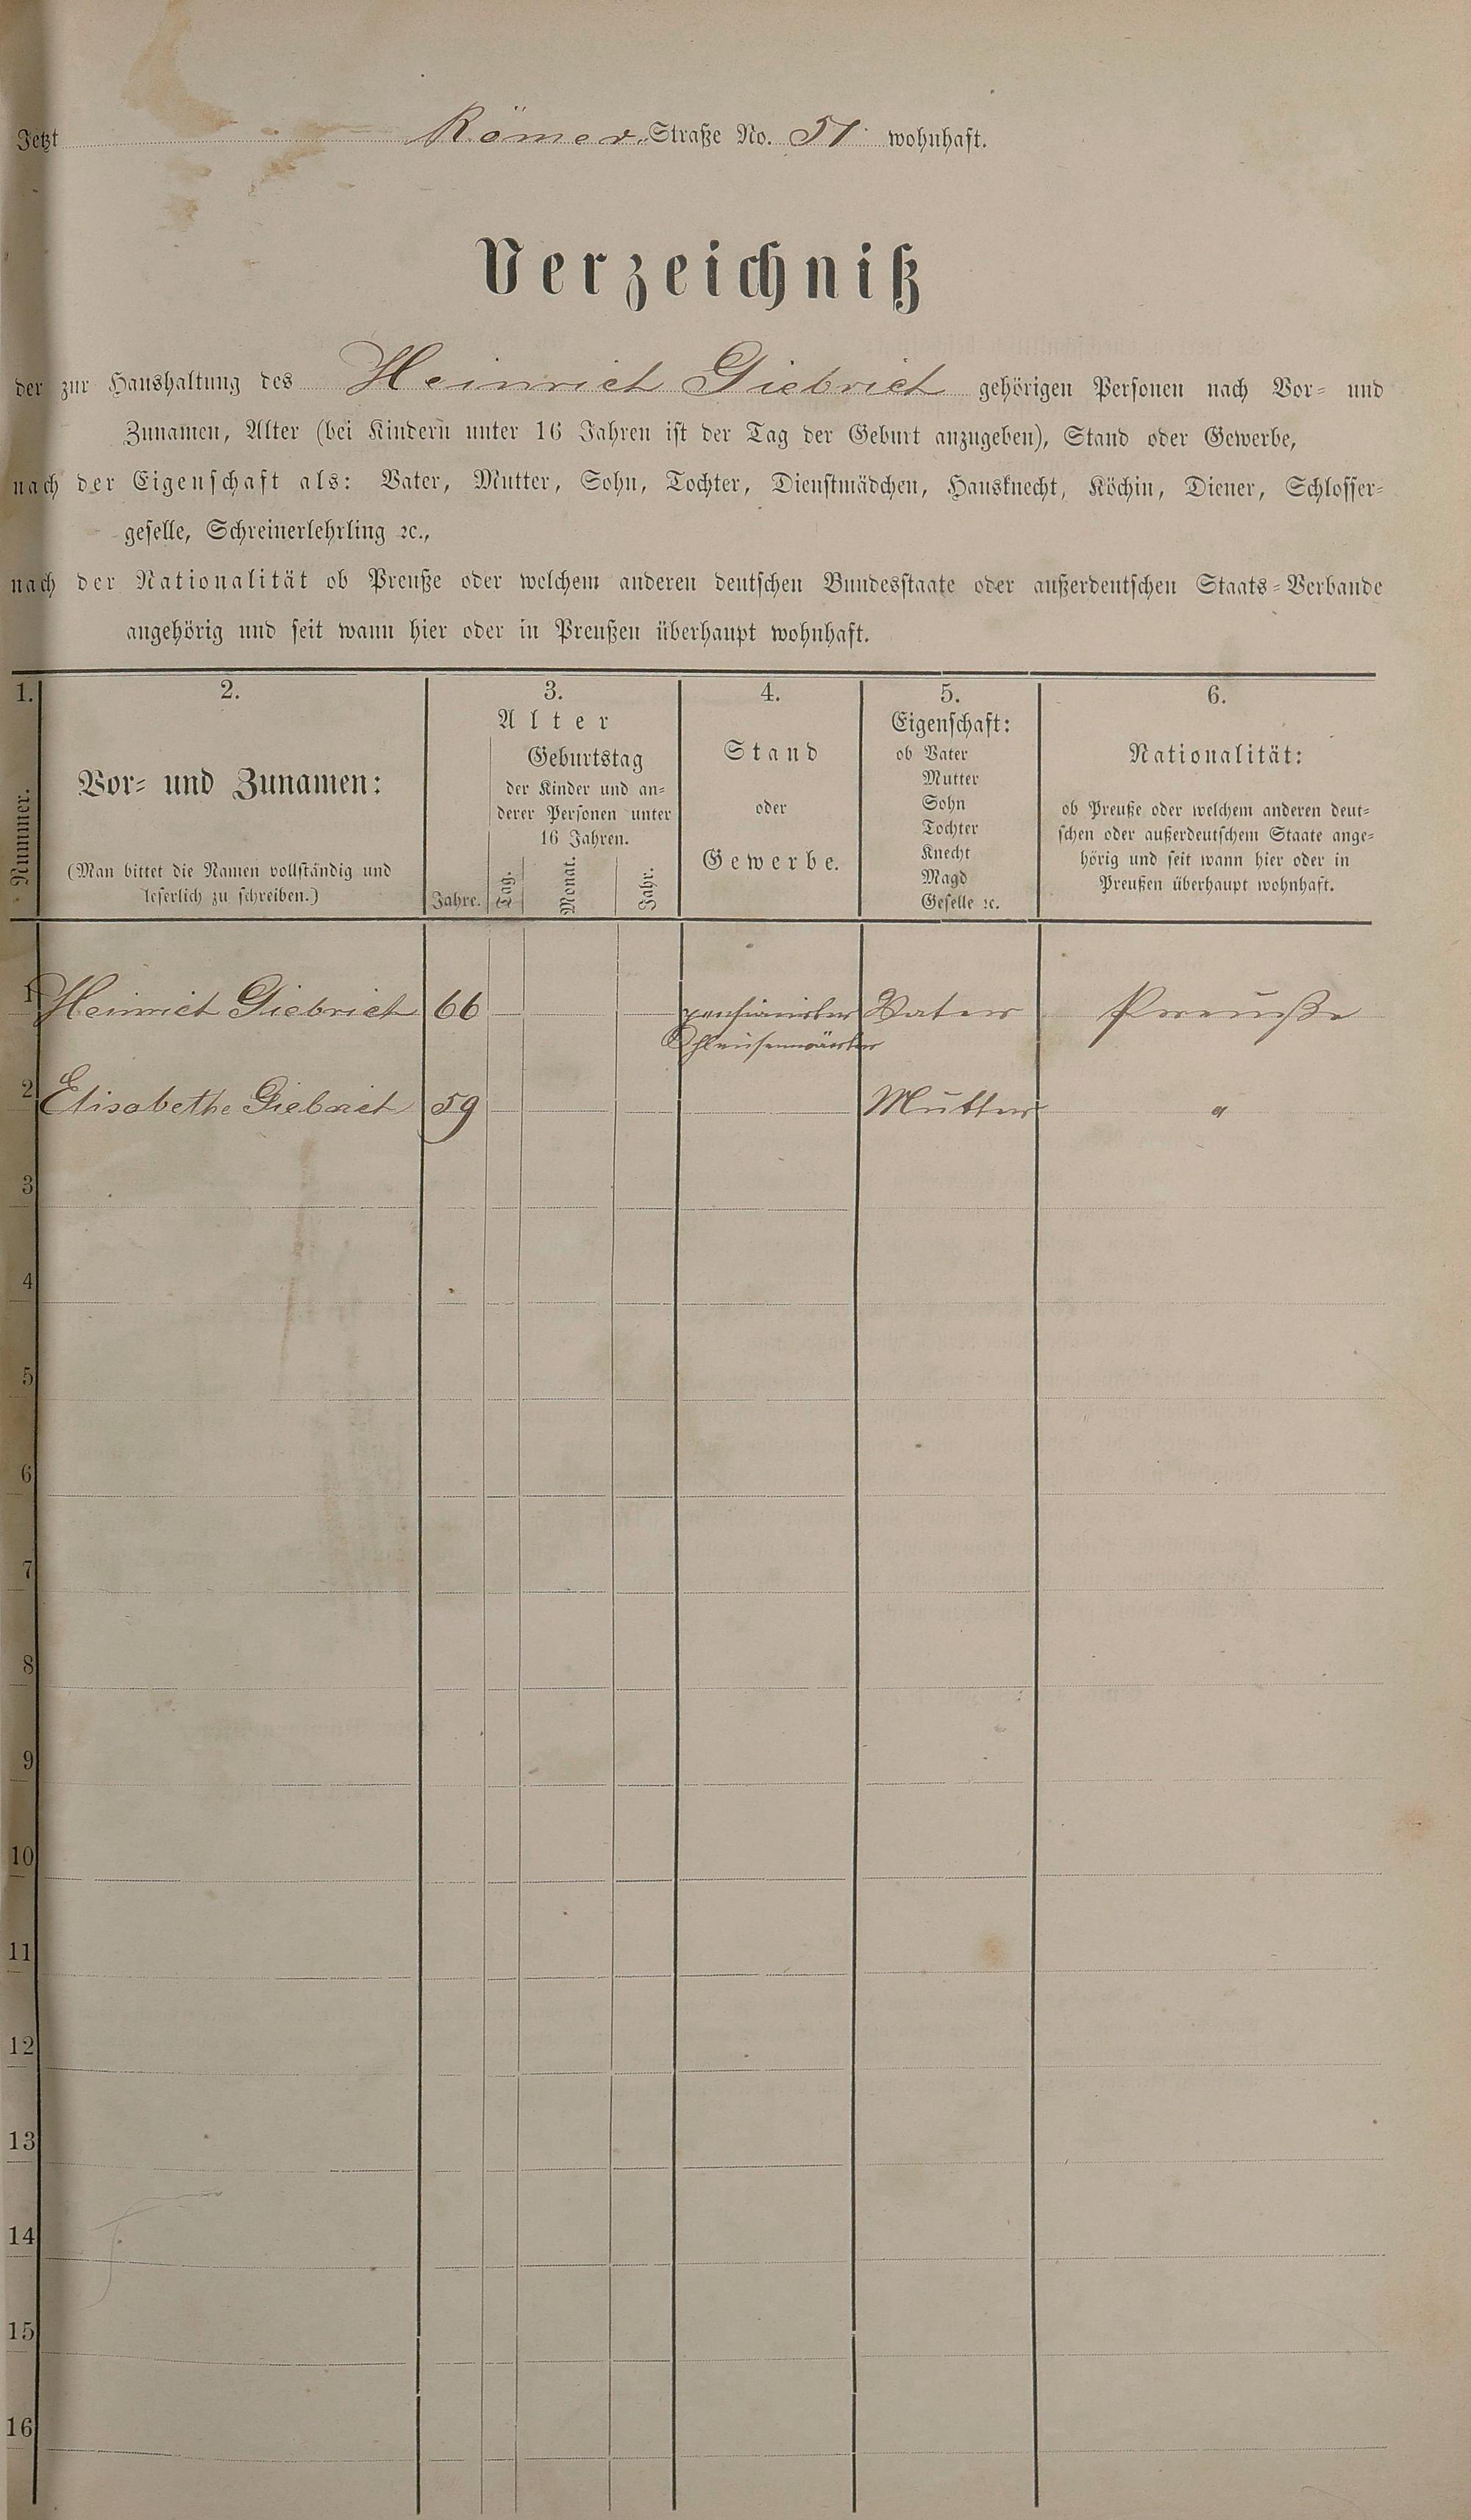 Jetzt Römer Straße No. 51 wohnhaft.
Verzeichniß
der zur Haushaltung des Heinrich Diebrich gehörigen Personen nach Vor- und
Zunamen, Alter (bei Kindern unter 16 Jahren ist der Tag der Geburt anzugeben), Stand oder Gewerbe,
nach der Eigenschaft als: Vater, Mutter, Sohn, Tochter, Dienstmädchen, Hausknecht, Köchin, Diener, Schlosser-
geselle, Schreinerlehrling ꝛc.,
nach der Nationalität ob Preuße oder welchem anderen deutschen Bundesstaate oder außerdeutschen Staats-Verbande
angehörig und seit wann hier oder in Preußen überhaupt wohnhaft.
1.
Nummer.
2.
Vor- und Zunamen:
(Man bittet die Namen vollständig und
leserlich zu schreiben.)
3.
Alter
Jahre.
Geburtstag
der Kinder und an-
derer Personen unter
16 Jahren.
Tag.
Monat.
Jahr.
4.
Stand
oder
Gewerbe.
5.
Eigenschaft:
ob Vater
Mutter
Sohn
Tochter
Knecht
Magd
Geselle ꝛc.
6.
Nationalität:
ob Preuße oder welchem anderen deut-
schen oder außerdeutschem Staate ange-
hörig und seit wann hier oder in
Preußen überhaupt wohnhaft.
1 Heinrich Diebrich 66 pensionirter Vater Preuße
Schleusenwärter
2 Elisabethe Diebrich 59 Mutter "
3
4
5
6
7
8
9
10
11
12
13
14
15
16